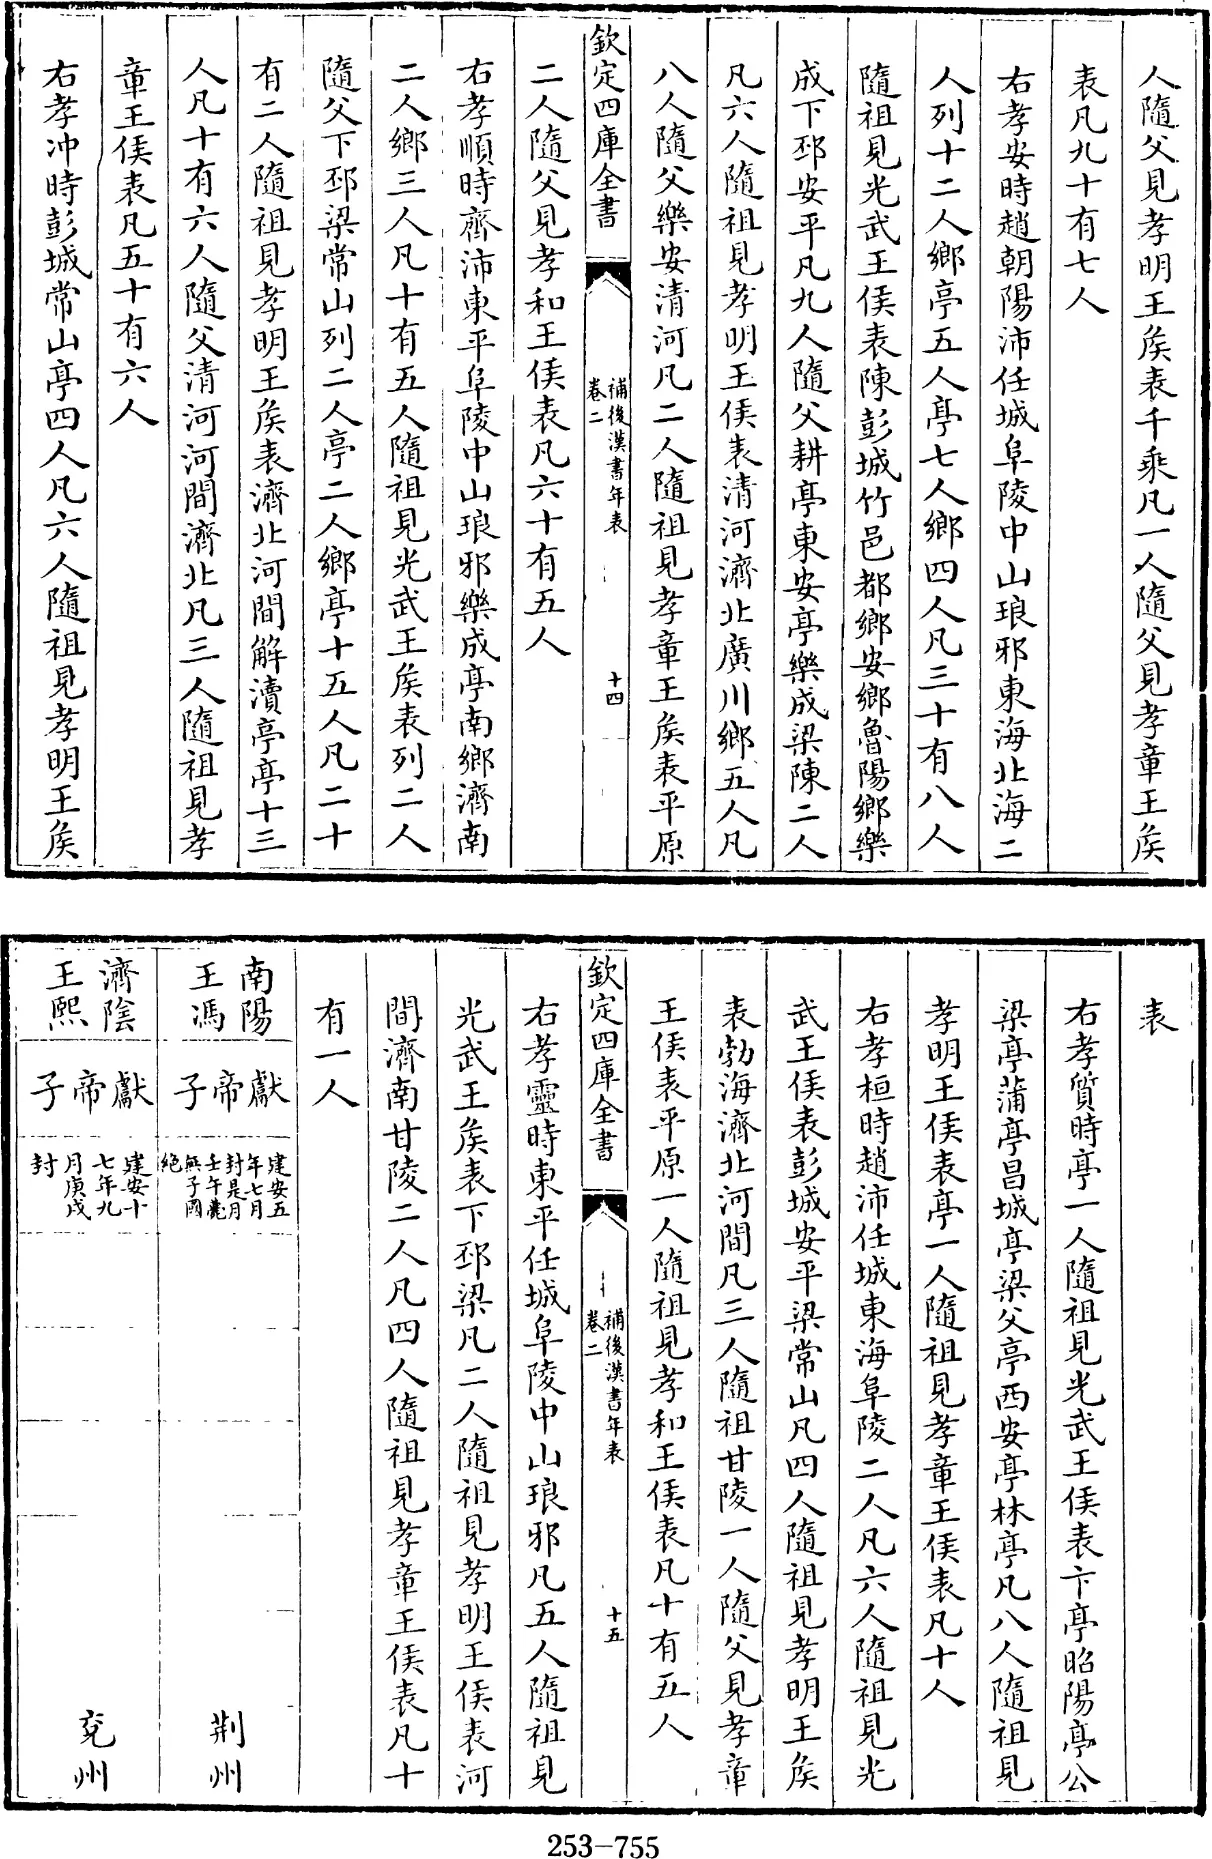 人隨父見孝明王侯表千乘凡一人隨父見孝章王侯
表凡九十有七人
右孝安時趙朝陽沛任城阜陵中山琅邪東海北海二
人列十二人鄉亭五人亭七人鄉四人凡三十有八人
隨祖見光武王侯表陳彭城竹邑都鄉安鄉魯陽鄉樂
成下邳安平凡九人隨父耕亭東安亭樂成梁陳二人
凡六人隨祖見孝明王侯表清河濟北廣川鄉五人凡
八人隨父樂安清河凡二人隨祖見孝章王侯表平原
欽定四庫全書
補後漢書年表
卷二
十四
二人隨父見孝和王侯表凡六十有五人
右孝順時齊沛東平阜陵中山琅邪樂成亭南鄉濟南
二人鄉三人凡十有五人隨祖見光武王侯表列二人
隨父下邳梁常山列二人亭二人鄉亭十五人凡二十
有二人隨祖見孝明王侯表濟北河間解瀆亭亭十三
人凡十有六人隨父清河河間濟北凡三人隨祖見孝
章王侯表凡五十有六人
右孝沖時彭城常山亭四人凡六人隨祖見孝明王侯
表
右孝質時亭一人隨祖見光武王侯表卞亭昭陽亭公
梁亭蒲亭昌城亭梁父亭西安亭林亭凡八人隨祖見
孝明王侯表亭一人隨祖見孝章王侯表凡十人
右孝桓時趙沛任城東海阜陵二人凡六人隨祖見光
武王侯表彭城安平梁常山凡四人隨祖見孝明王侯
表勃海濟北河間凡三人隨祖甘陵一人隨父見孝章
王侯表平原一人隨祖見孝和王侯表凡十有五人
欽定四庫全書
補後漢書年表
卷二
十五
右孝靈時東平任城阜陵中山琅邪凡五人隨祖見
光武王侯表下邳梁凡二人隨祖見孝明王侯表河
間濟南甘陵二人凡四人隨祖見孝章王侯表凡十
有一人
南陽
王馮
獻帝子
建安五
年七月
封是月
壬午薨
無子國
絕
荆州
濟陰
王熙
獻帝子
建安十
七年九
月庚戌
封
兗州
253-755